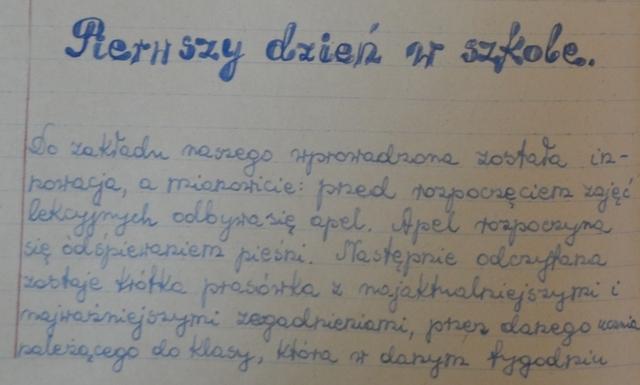 Pierwszy dzień w szkole.
Do zakładu naszego wprowadzona została in-
nowacja, a mianowicie: przed rozpoczęciem zajęć
lekcyjnych odbywa się apel. Apel rozpoczyna
się odśpiewaniem pieśni. Następnie odczytana
zostaje krótka prasówka z najaktualniejszymi i
najważniejszymi zagadnieniami, przez danego ucznia
należącego do klasy, która w danym tygodniu